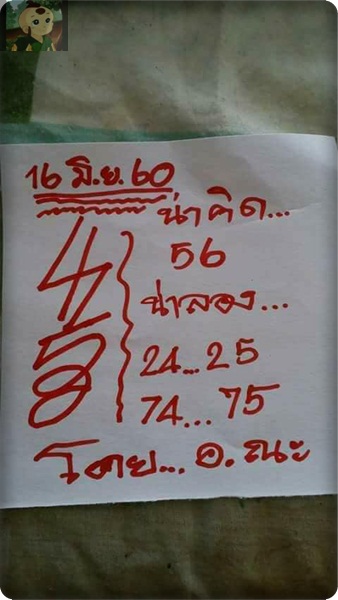 16 มิ.ย. 60
น่าคิด...
4
56
น่าลอง...
5
24...25
74...75
โดย... อ. ณะ